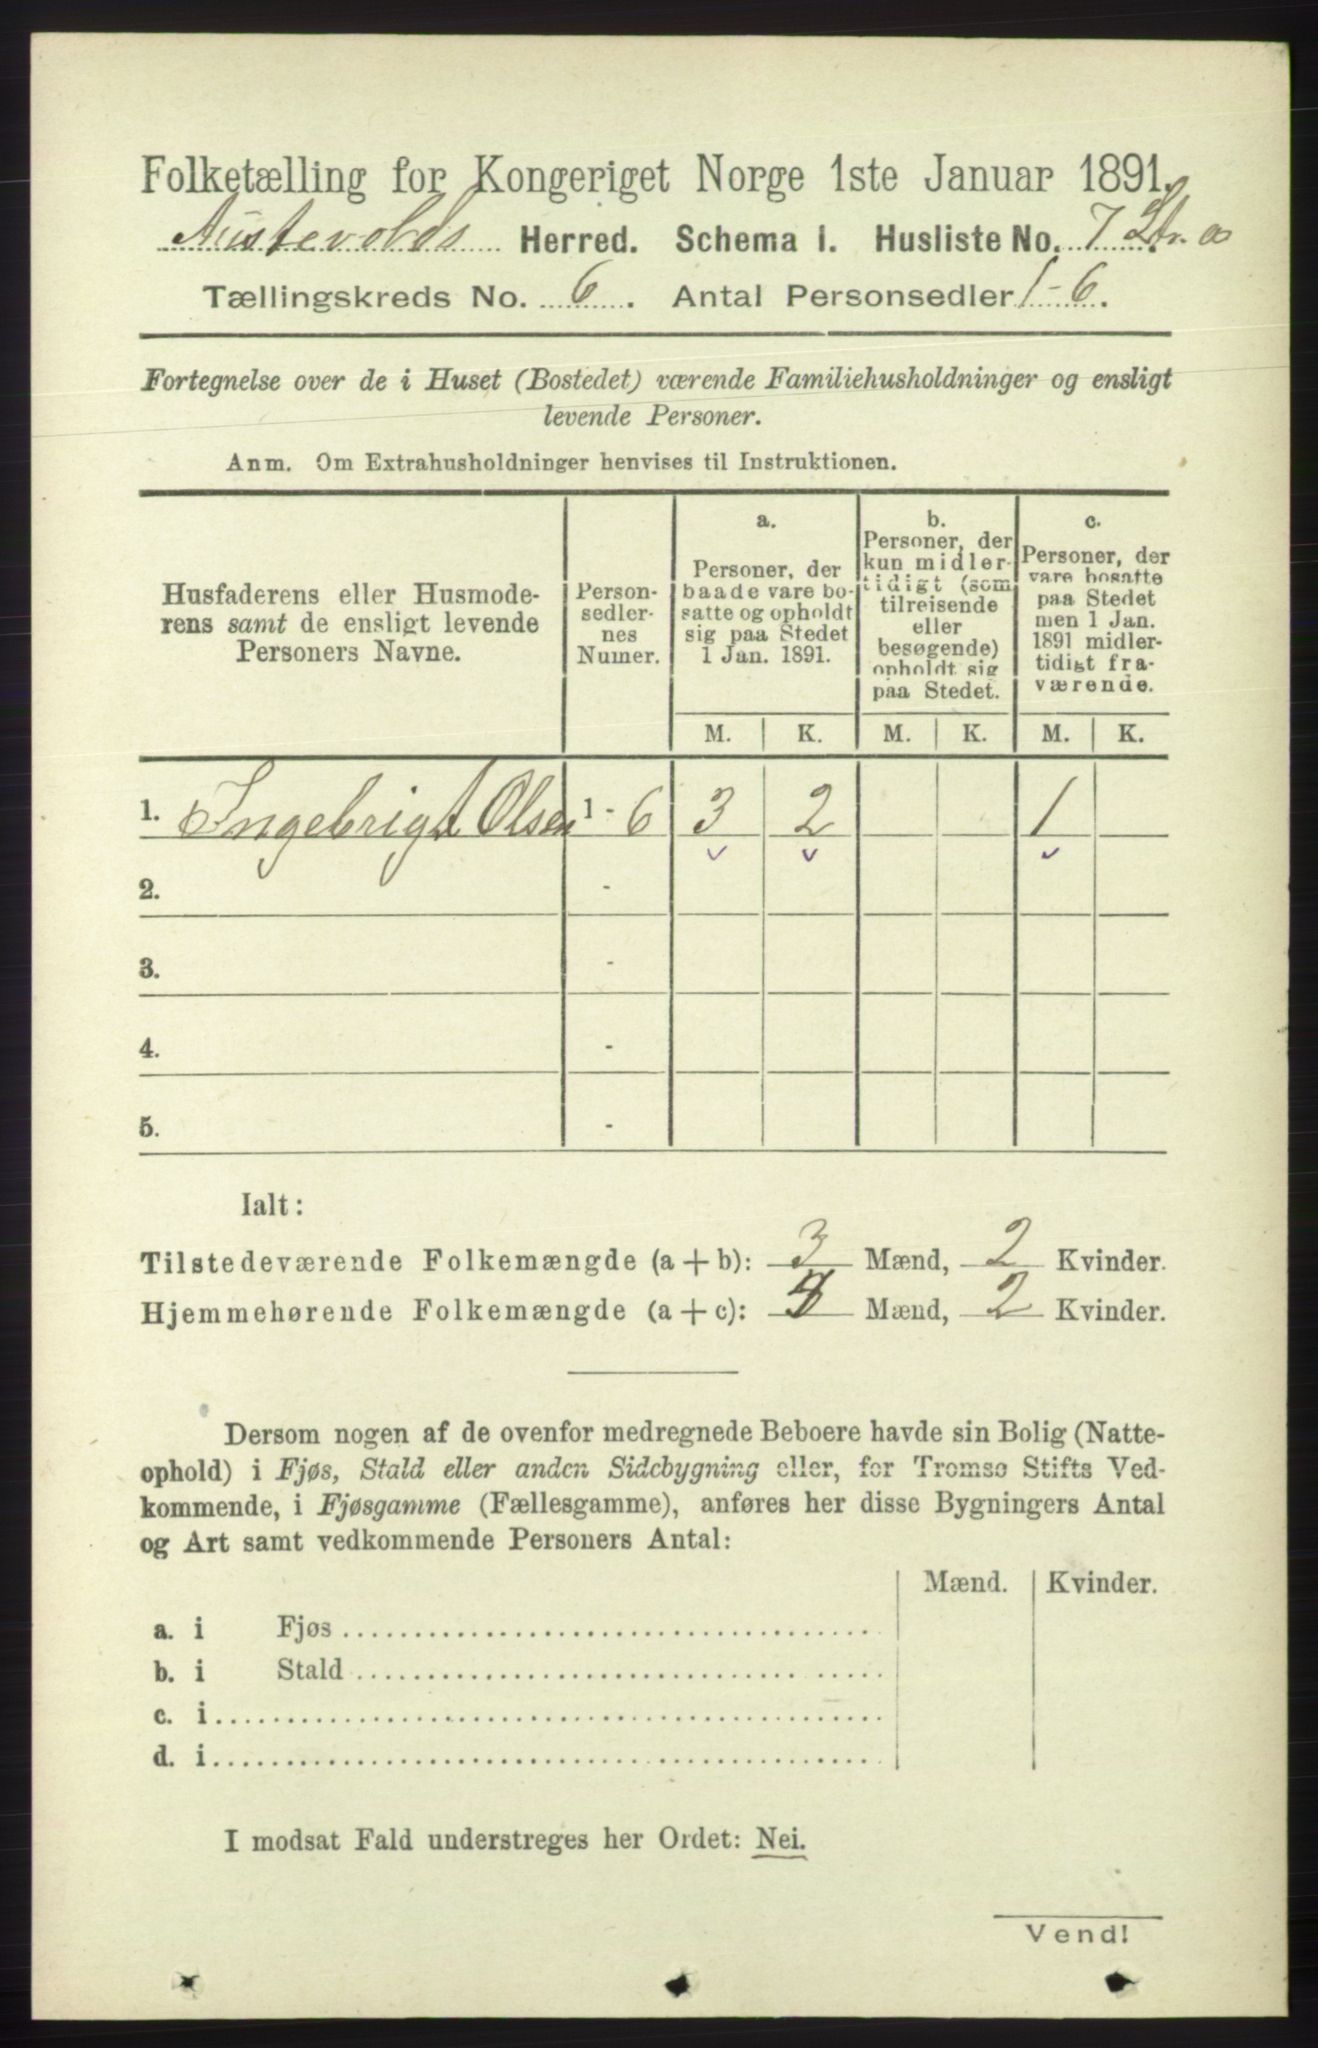 Folketælling for Kongeriget Norge 1ste Januar 1891.
Austevolds Herred. Schema I. Husliste No. 7 Litr. a
Tællingskreds No. 6. Antal Personsedler 1-6.
Fortegnelse over de i Huset (Bostedet) værende Familiehusholdninger og ensligt
levende Personer.
Anm. Om Extrahusholdninger henvises til Instruktionen.
Husfaderens eller Husmode-
rens samt de ensligt levende
Personers Navne.
Person-
sedler-
nes
Numer.
a.
Personer, der
baade vare bo-
satte og opholdt
sig paa Stedet
1 Jan. 1891.
b.
Personer, der
kun midler-
tidigt (som
tilreisende
eller
besøgende)
opholdt sig
paa Stedet.
c.
Personer, der
vare bosatte
paa Stedet
men 1 Jan.
1891 midler-
tidigt fra-
værende.
M. K. M. K. M. K.
1. Ingebrigt Olsen 1 - 6 3 2 1
2. -
3. -
4. -
5. -
Ialt:
Tilstedeværende Folkemængde (a + b): 3 Mænd, 2 Kvinder.
Hjemmehørende Folkemængde (a + c): 4 Mænd, 2 Kvinder.
Dersom nogen af de ovenfor medregnede Beboere havde sin Bolig (Natte-
ophold) i Fjøs, Stald eller anden Sidebygning eller, for Tromsø Stifts Ved-
kommende, i Fjøsgamme (Fællesgamme), anføres her disse Bygningers Antal
og Art samt vedkommende Personers Antal:
Mænd. Kvinder.
a. i Fjøs
b. i Stald
c. i
d. i
I modsat Fald understreges her Ordet: Nei.
Vend!